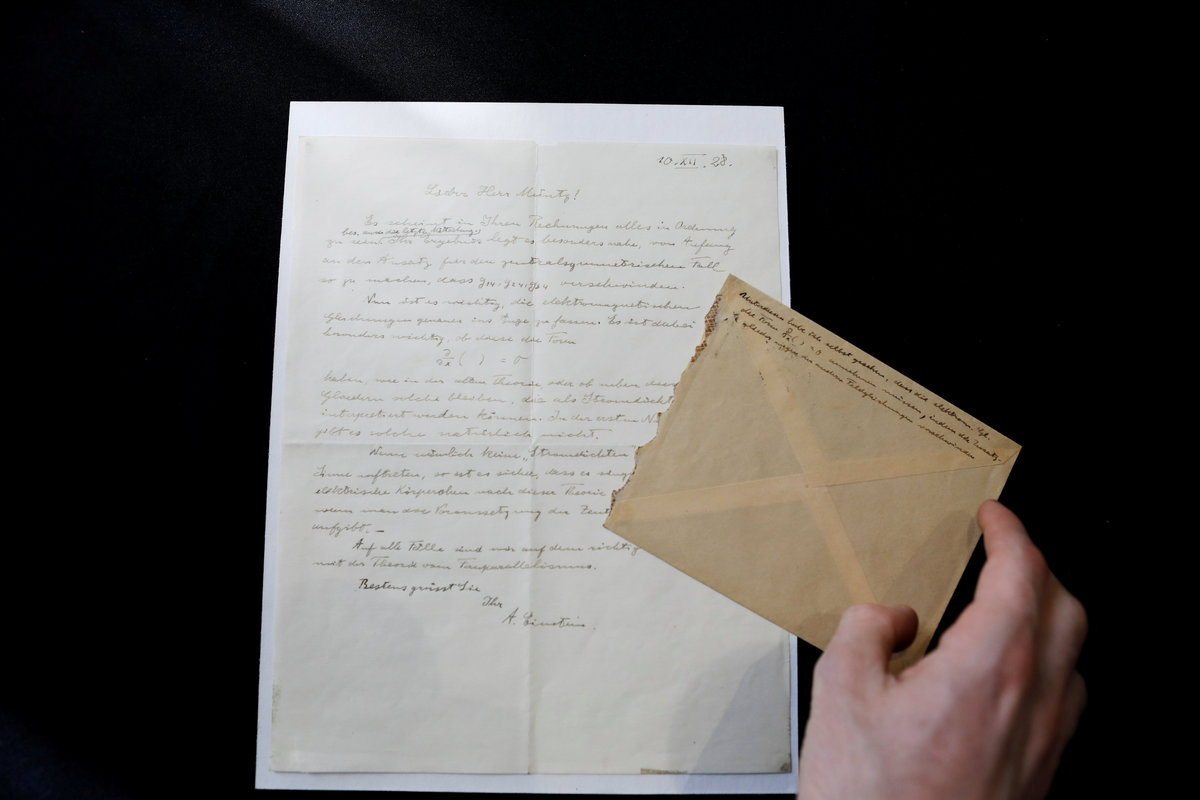 10.XII.28.
Lieber Herr Müntz!
Es scheint in Ihren Rechnungen alles in Ordnung
bes. auch die letzte Mitteilung
zu sein. Ihr Ergebnis legt es besonders nahe, von Anfang
an den Ansatz für den zentralsymmetrischen Fall
so zu machen, dass g14, g24, g34 verschwinden.
Nun ist es wichtig, die elektromagnetischen
Gleichungen genauer ins Auge zu fassen. Es ist dabei
besonders wichtig, ob diese die Form
∂/∂x ( ) = 0
haben, wie in der alten Theorie, oder ob neben
Gliedern solche bleiben, die als Stromdicht
interpretiert werden können. In der ersten
gibt es solche natürlich nicht.
Wenn nämlich keine „Stromdichten"
Sinne auftreten, so ist es sicher, dass es
elektrische Körperchen nach dieser Theorie
wenn man die Voraussetzung der
aufgibt. —
Auf alle Fälle sind wir auf dem richtig
mit der Theorie vom Fernparallelismus.
Bestens grüsst Sie
Ihr
A. Einstein.
Unterdessen habe ich selbst gesehen, dass die elektrom. Gl.
die Form ∂/∂x ( ) = 0 annehmen müssen, indem die Zusatz-
glieder wegen der anderen Feldgleichungen verschwinden